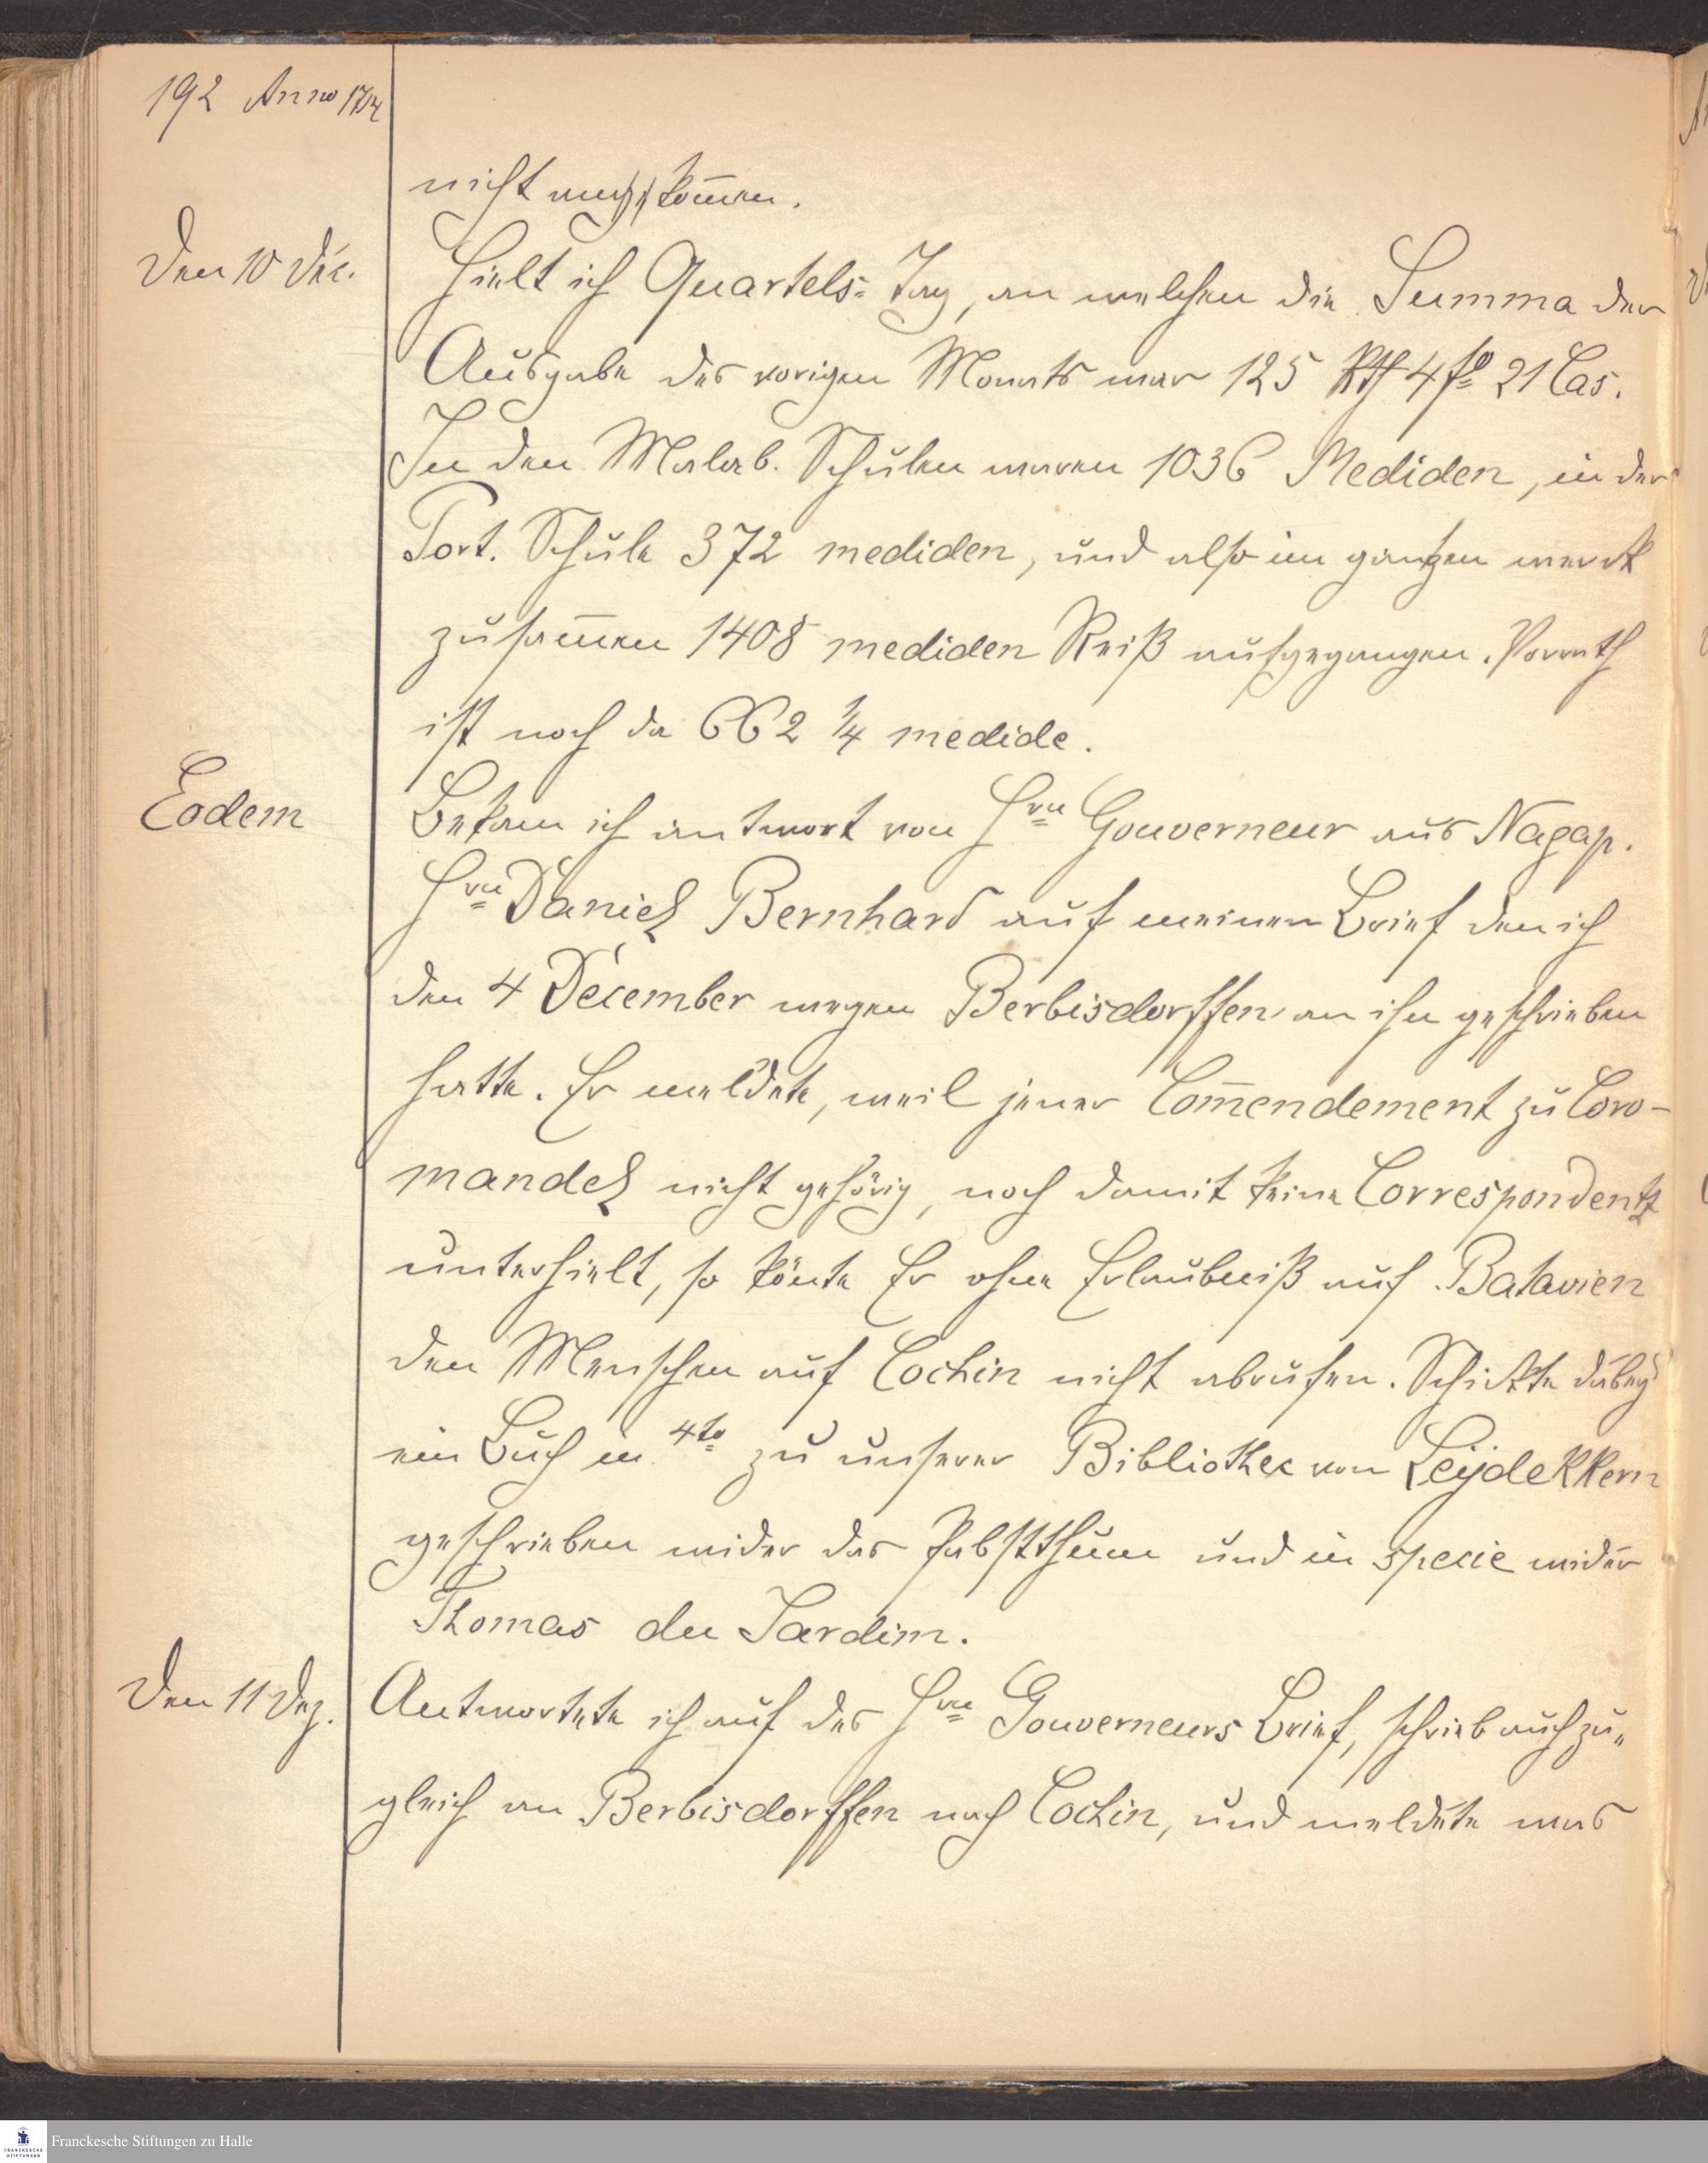 192 Anno 1714
nicht nach kom̅en.
Den 10 Dec.
Hielt ich Quartels=Tag, an welchen die Summa der
Ausgabe des vorigen Monats war 125 Rth 4 fo 21 Cas.
In den Malab. Schulen waren 1036 Mediden, in der
Port. Schule 372 mediden, und also im gantzen
zusam̅en 1408 mediden Reiß aufgegangen. Vorrath
ist noch da 662 1/4 medide.
Eodem
Bekam ich antwort von Hrn Gouverneur aus Nagap.
Hrn Daniel Bernhard auf meinen Brief den ich
den 4 December wegen Berbisdorffen an ihn geschrieben
hatte. Er meldete, weil jener Com̅endement zu Coro-
mandel nicht gehörig, noch damit keine Correspondentz
unterhielt, so kön̅te Er ohne Erlaubniß auf Batavien
den Menschen auf Cochin nicht abrufen. Schickte dabey
ein Buch in 4to zu unserer Bibliothec von Leijdekkern
geschrieben wider das Pabstthum und in specie wider
Thomas du Jardim.
Den 11 Dez.
Antwortete ich auf des Hrn Gouverneurs Brief, schrieb auch zu„
gleich an Berbisdorffen nach Cochin, und meldete was
Franckesche Stiftungen zu Halle